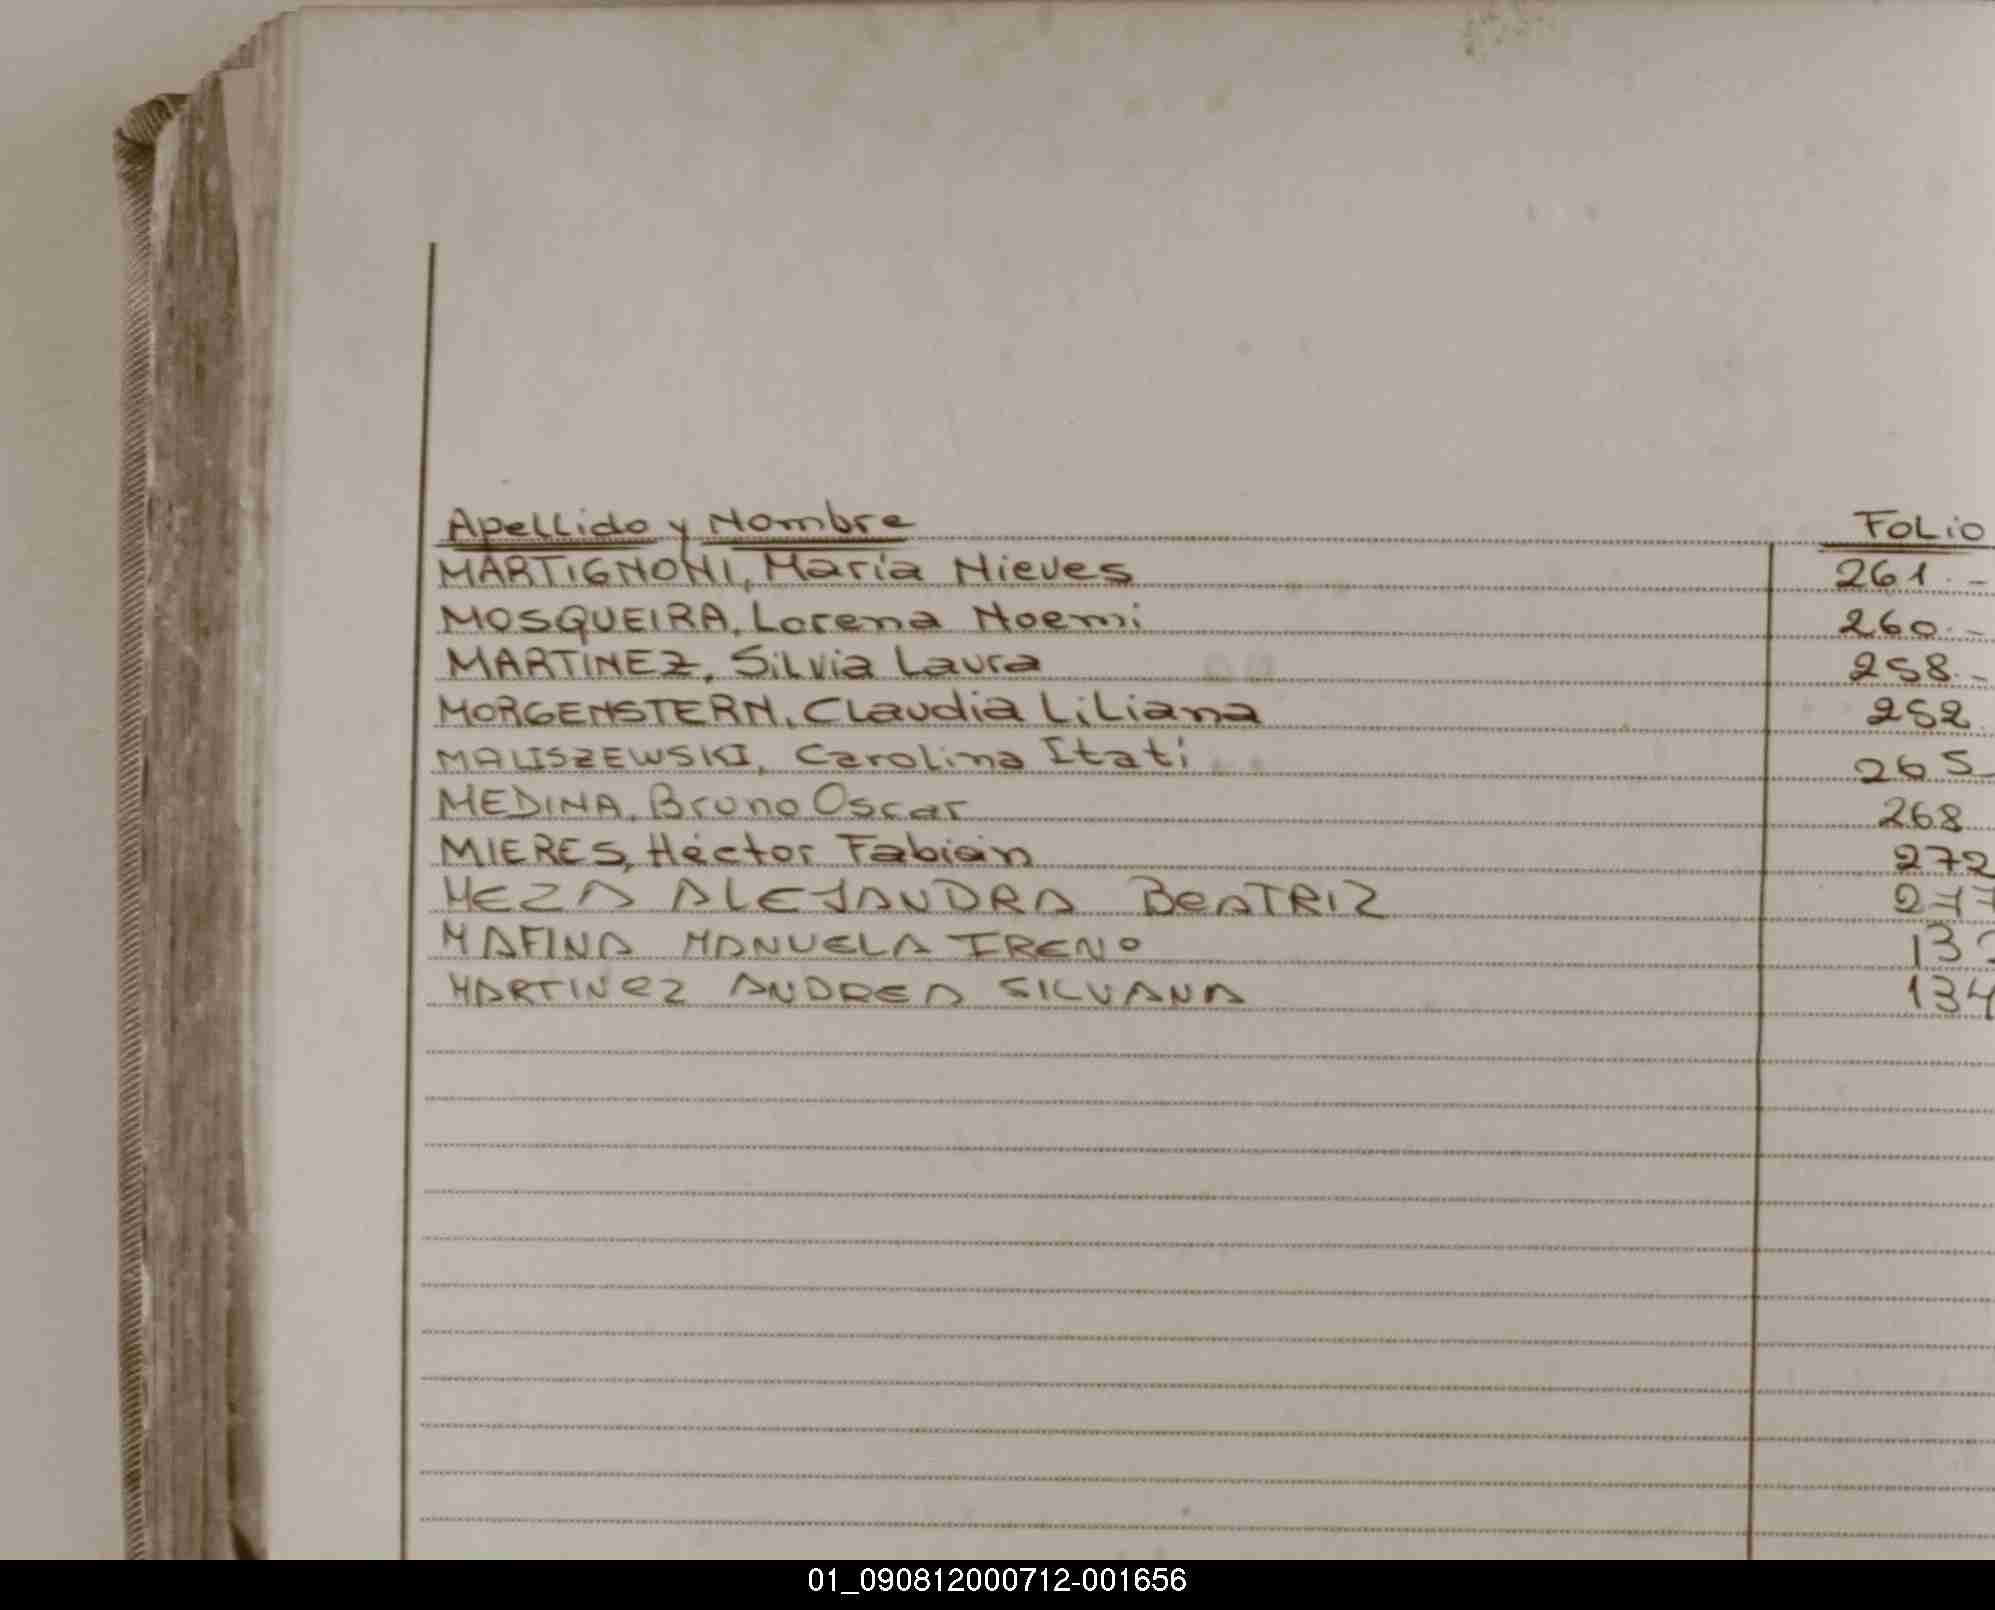 Apellido y Nombre FOLIO
MARTIGNONI, María Nieves 261.-
MOSQUEIRA, Lorena Noemi 260.-
MARTINEZ, Silvia Laura 258.-
MORGENSTERN, Claudia Liliana 252
MALISZEWSKI, Carolina Itatí 265
MEDINA, Bruno Oscar 268
MIERES, Héctor Fabián 272
MEZA ALEJANDRA BEATRIZ 277
MAFINA MANUELA IRENO
MARTINEZ ANDREA SILVANA 134
01_090812000712-001656